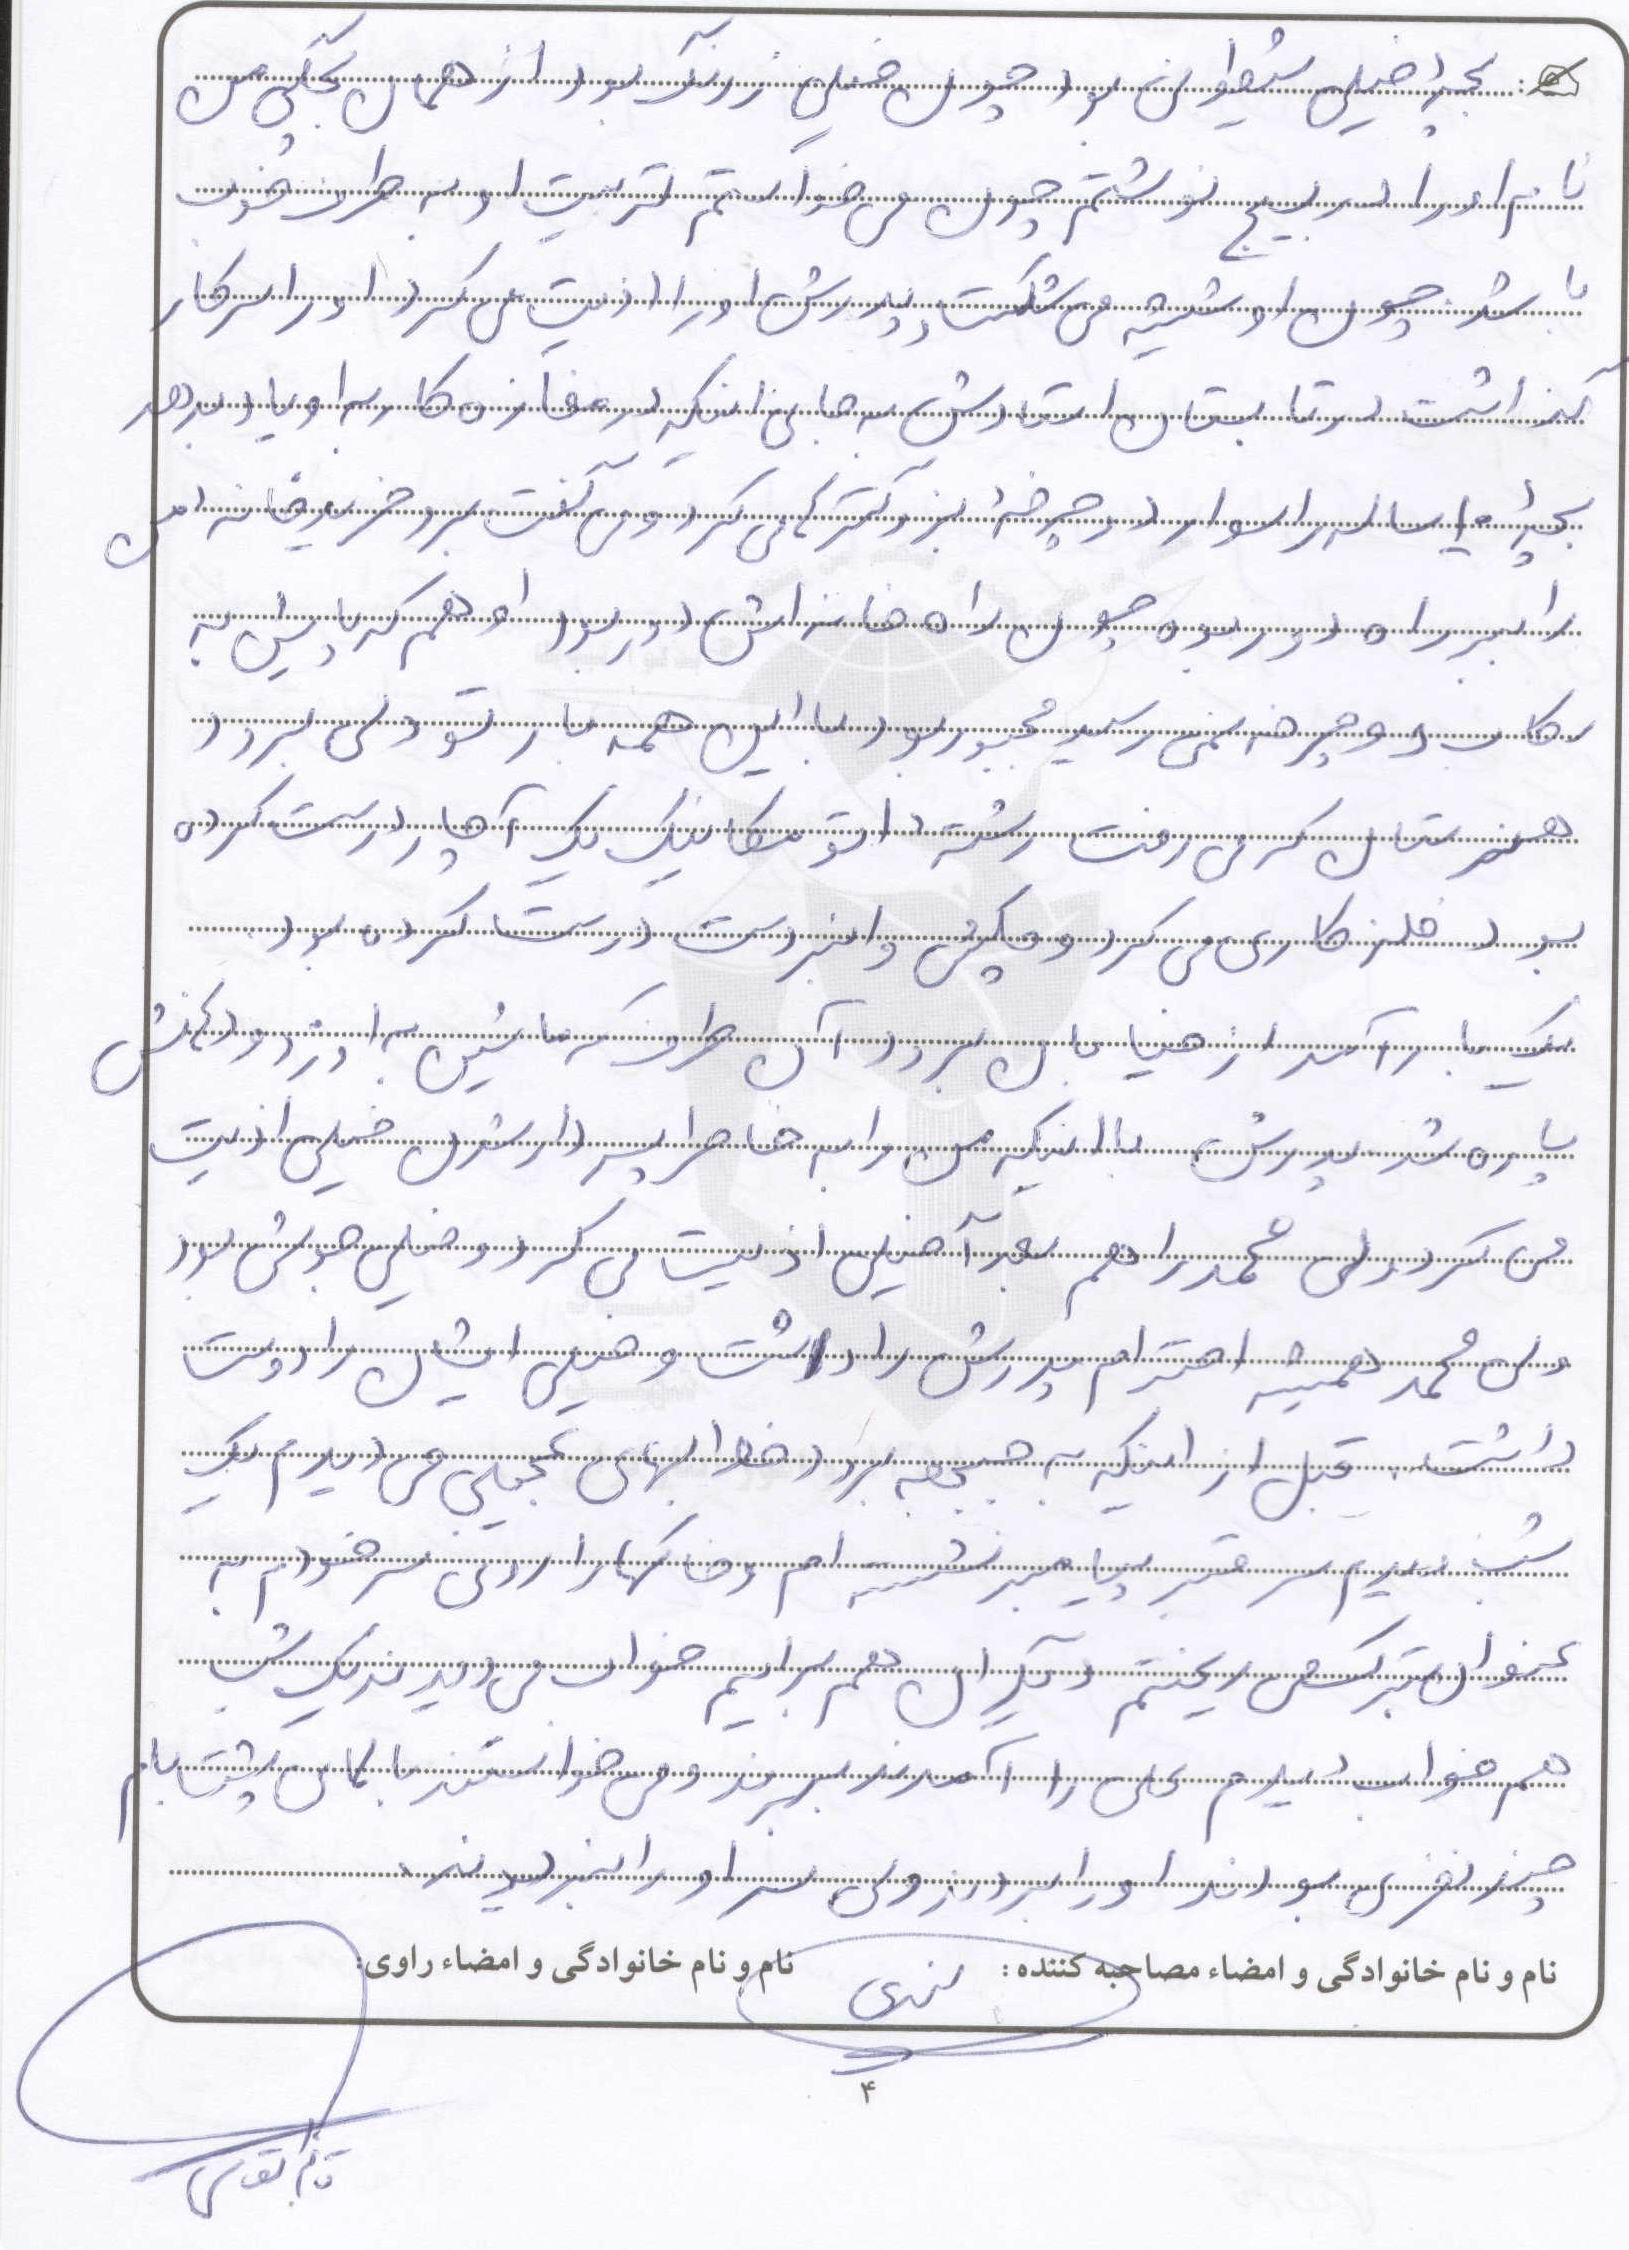 بچهٔ خیلی شیطونی بود چون خیلی زرنگ بود از همان بچگی من
نام او را در بسیج نوشتم چون می خواستم تربیت او به طرف خوب
باشد چون او شیشه می شکست و پدرش او را اذیت می کرد او را سر کار
گذاشت در تابستان استادش به جای اینکه در مغازه کار به او یاد بدهد
بچهٔ ۱۰ ساله را سوار دوچرخهٔ بزرگتر می کرد و می گفت برو خرید خانه ام
را ببر راه دور بوده چون راه خانه اش دور بود او هم که پایش به
رکاب دوچرخه نمی رسید مجبور بود با این همه بار تو دلی برود
هنرستان که می رفت رشته اتو مکانیک یک آچار درست کرده
بود فلز کاری می کرد و چکش و انبردست درست کرده بود.
یک بار آمد از خیابان برود آن طرف که ماشین به او زد و کفش
پاره شد. پدرش با اینکه من را به خاطر پسر دار شدن خیلی اذیت
می کرد ولی محمد را هم بعداً خیلی اذیت می کرد و خیلی جوشی بود
ولی محمد همیشه احترام پدرش را داشت و خیلی ایشان را دوست
داشت. قبل از اینکه به جبهه برود خوابهای عجیبی می دیدم یک
شب دیدم سر قبر پیامبر نشسته ام و خاکها را روی سر خودم به
عنوان تبرک می ریختم دیگران هم برایم خواب می دیدند یک شب
هم خواب دیدم علی را آمدند ببرند و می خواستند بالای پشت بام
چند نفری بودند او را بردند ولی سر او را نبریدند.
نام و نام خانوادگی و امضاء مصاحبه کننده :
نام و نام خانوادگی و امضاء راوی:
۴